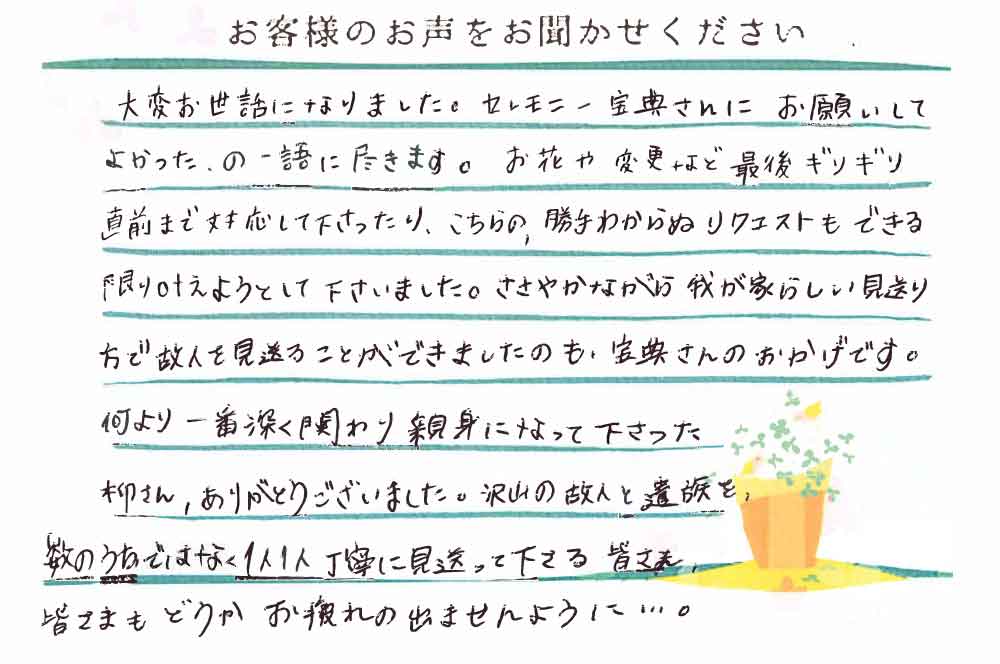 お客様のお声をお聞かせください
大変お世話になりました。セレモニー宝典さんにお願いして
よかった、の一語に尽きます。お花や変更など最後ギリギリ
直前まで対応して下さったり、こちらの、勝手わからぬリクエストもできる
限り叶えようとして下さいました。ささやかながら我が家らしい見送り
方で故人を見送ることができましたのも、宝典さんのおかげです。
何より一番深く関わり親身になって下さった
柳さん、ありがとうございました。沢山の故人と遺族を、
数のうちではなく1人1人丁寧に見送って下さる皆さま、
皆さまもどうかお疲れの出ませんように…。